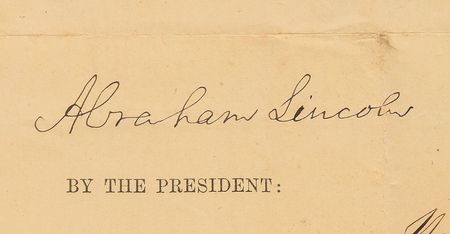 Abraham Lincoln
BY THE PRESIDENT: